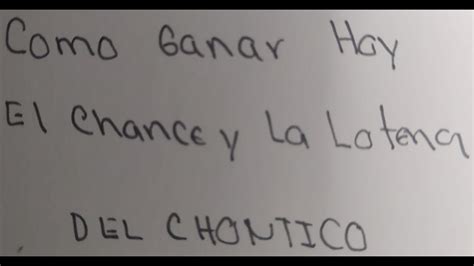 Como Ganar Hoy
El Chance y La Loteria
DEL CHONTICO